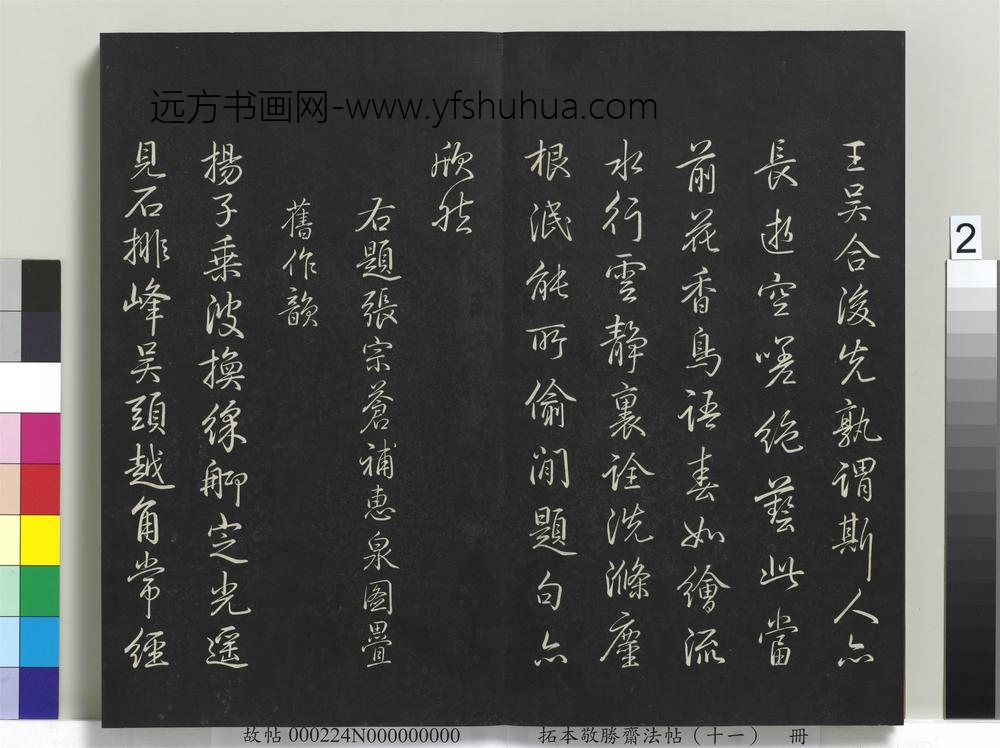 远方书画网-www.yfshuhua.com
王吴合後先孰謂斯人亦
長逝空嗟絶藝此當
前花香鳥語春如繪流
水行雲靜裏詮洗滌塵
根泯能所偷閒題句亦
欣然
右題張宗蒼補惠泉圖疊
舊作韻
揚子乗波換綵舼定光遥
見石排峰吴頭越角常經
2
故帖 000224N000000000
拓本敬勝齋法帖（十一） 冊